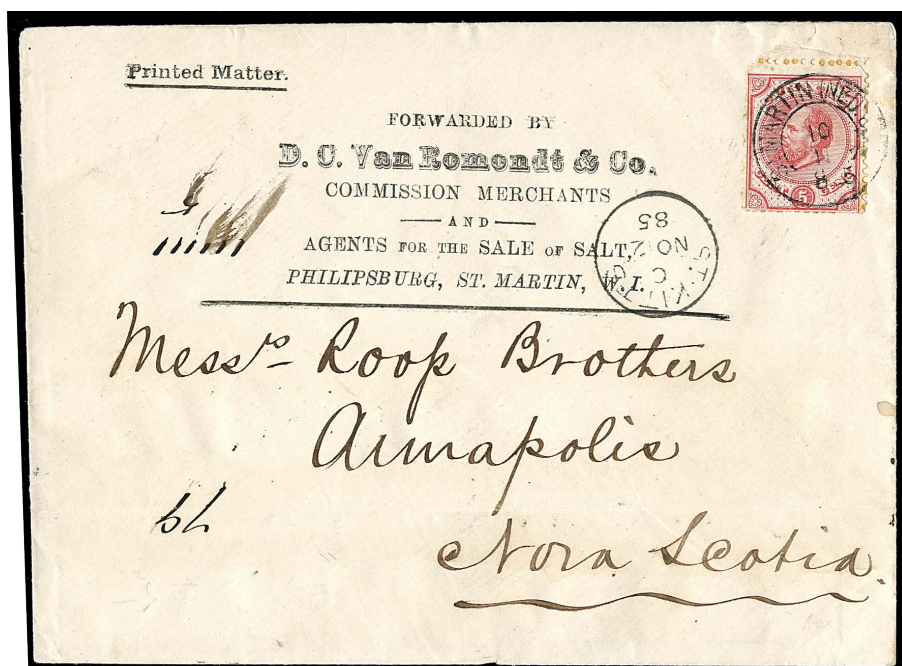 Printed Matter.
FORWARDED BY
D. C. Van Romondt & Co.
COMMISSION MERCHANTS
AND
AGENTS FOR THE SALE OF SALT,
PHILIPSBURG, ST. MARTIN, W. I.
ST. MARTIN (NED.
10
11
5
ST. KITTS
C
NO 2
85
Messrs Roop Brothers
Annapolis
Nova Scotia.